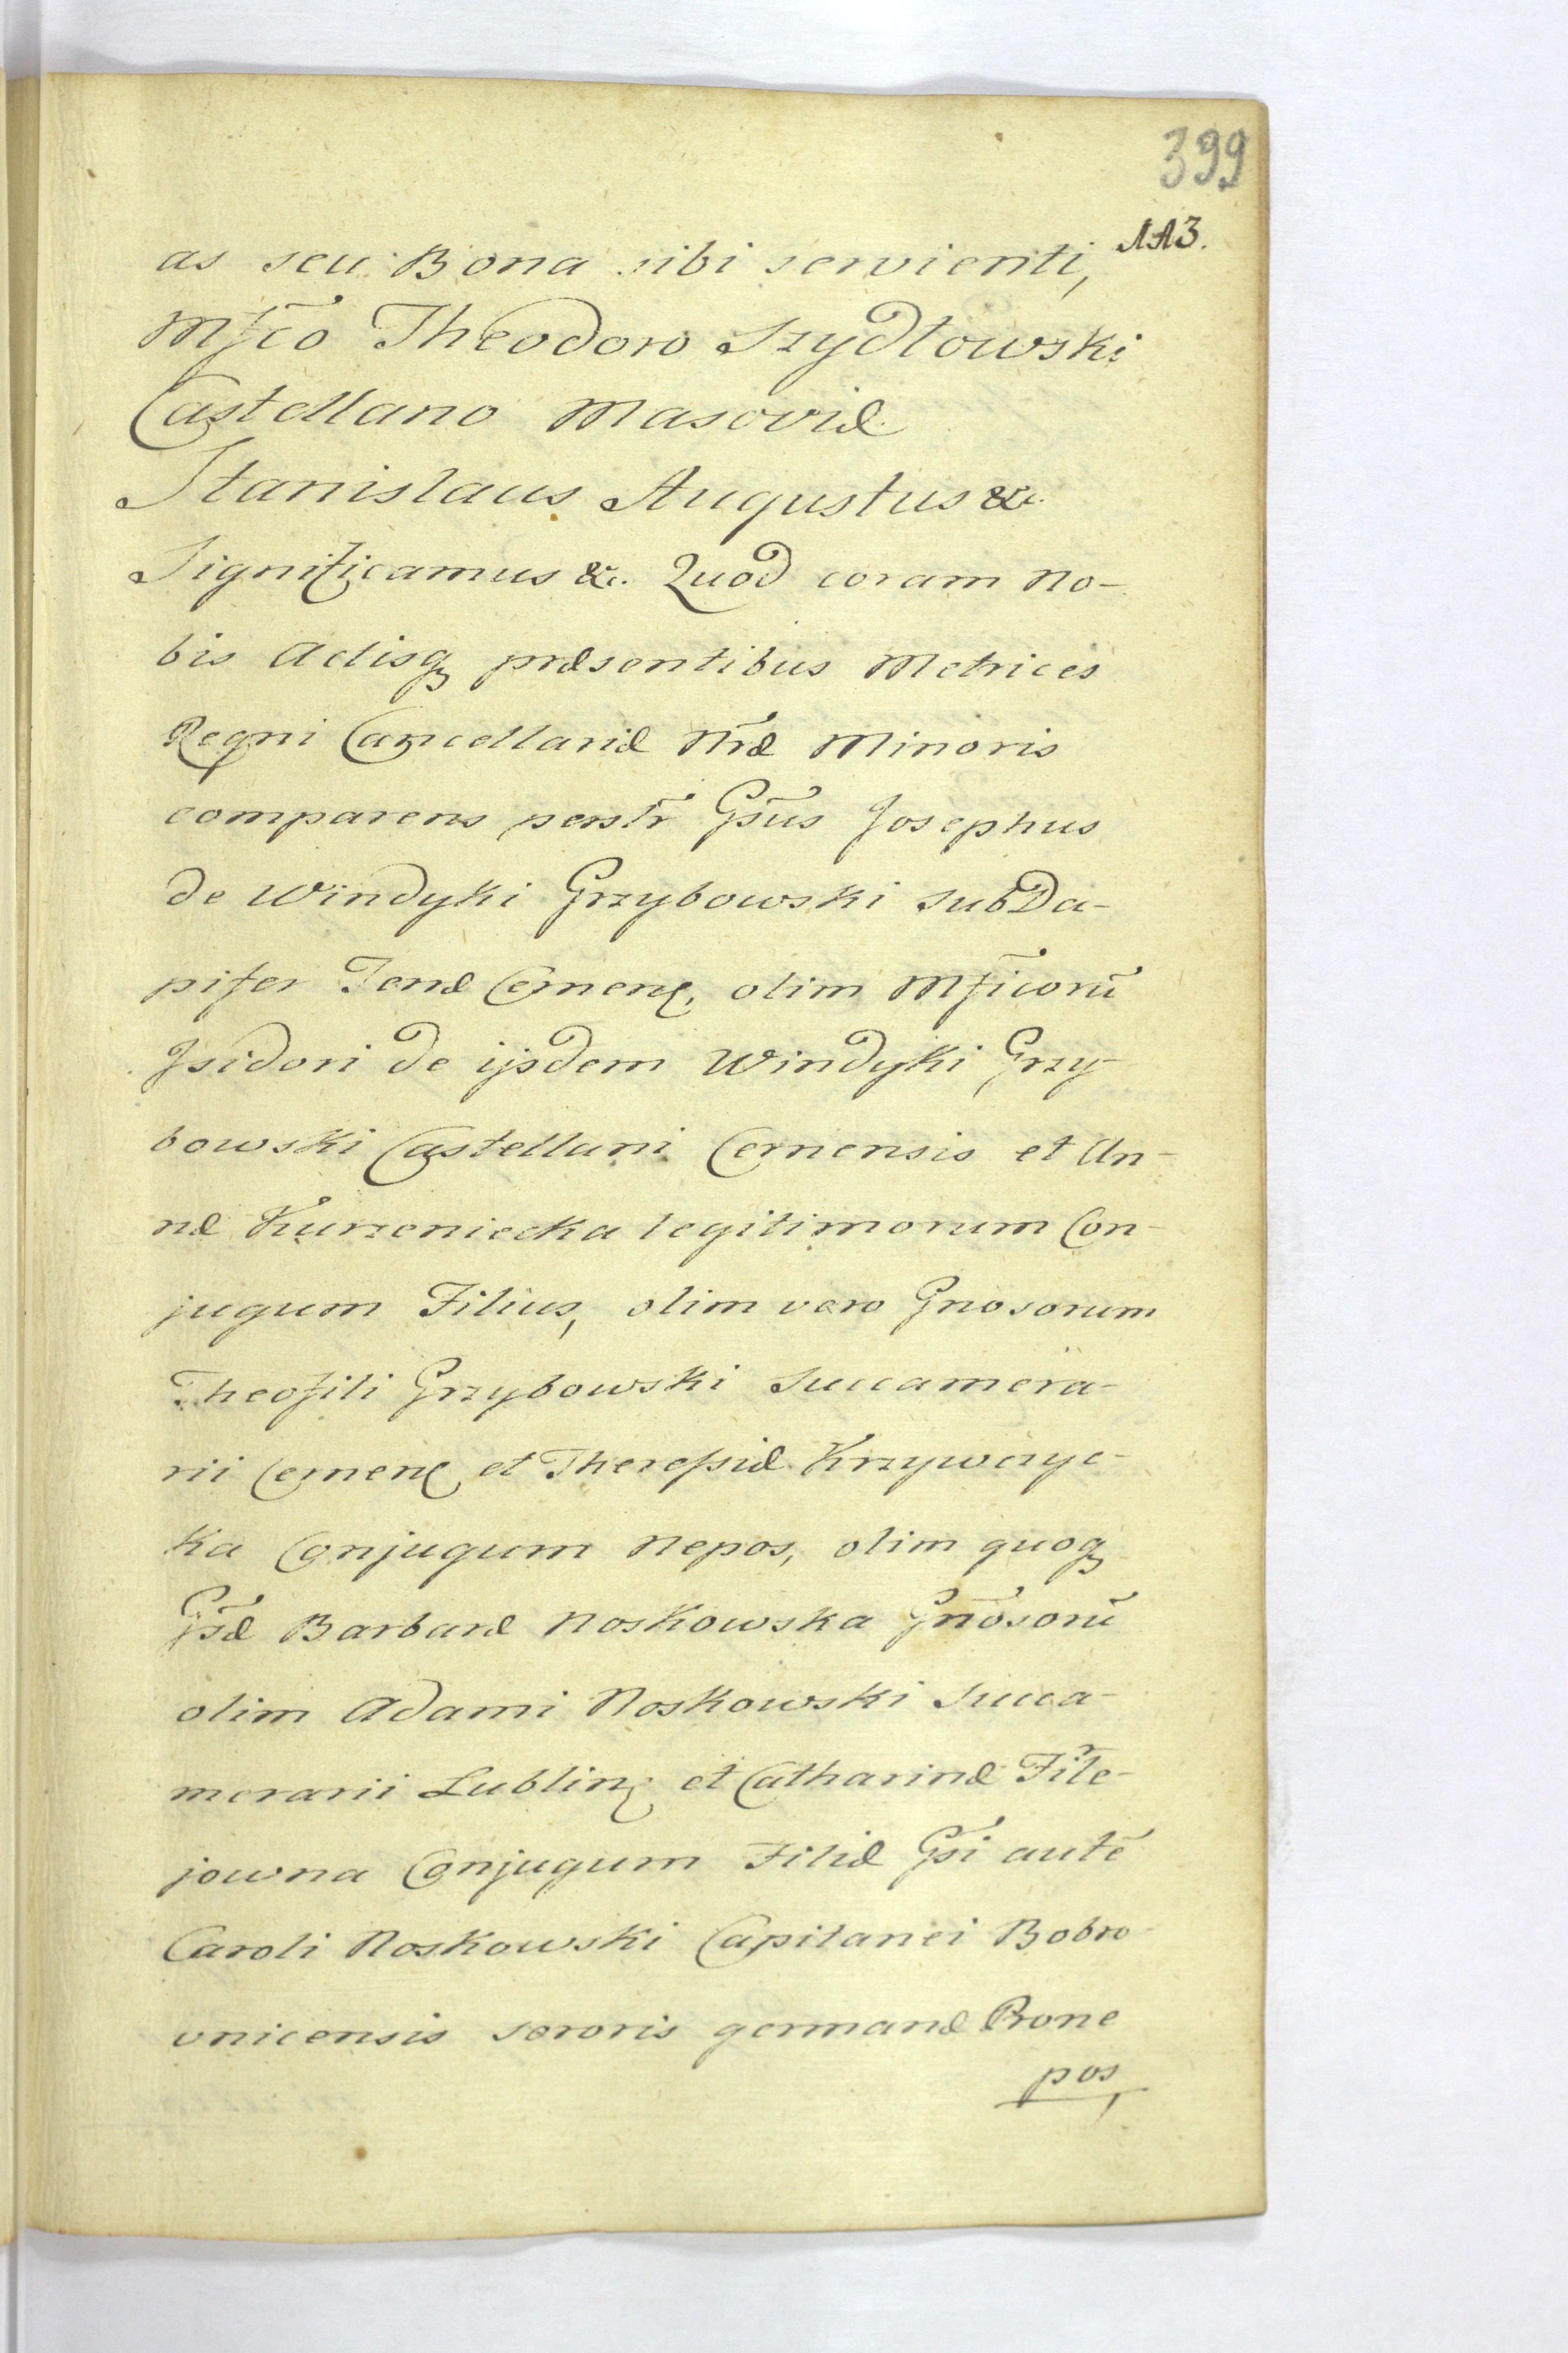 399
113.
as seu Bona sibi servienti,
Mfco Theodoro Szydłowski
Castellano Masoviæ.
Stanislaus Augustus &c.
Significamus &c. Quod coram No-
bis Actisq præsentibus Metrices
Regni Cancellariæ Nræ Minoris
comparens perstr Gsus Josephus
de Windyki Grzybowski SubDa-
pifer Terræ Cernen, olim Mficorū
Isidori de ijsdem Windyki Grzy-
bowski Castellani Cernensis et An-
næ Kurzeniecka legitimorum Con-
jugum Filius, olim vero Gnosorum
Theofili Grzybowski Succamera-
rii Cernen et Theressiæ Krzywczyc-
ka Conjugum Nepos, olim quoq
Gsæ Barbaræ Noskowska Gnōsorū
olim Adami Noskowski Succa-
merarii Lublin et Catharinæ File-
jowna Conjugum Filiæ Gsi autē
Caroli Noskowski Capitanei Bobro-
vnicensis sororis germanæ Prone
pos